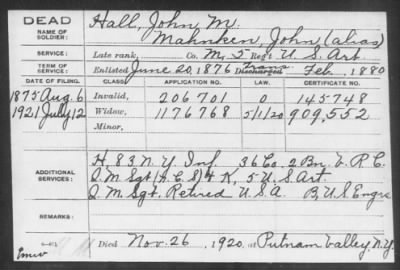 DEAD
NAME OF SOLDIER:
Hall, John M.
Mahnken, John (alias)
SERVICE:
Late rank, Co. M, 5 Reg't U. S. Art.
TERM OF SERVICE:
Enlisted June 20, 1876 Trans Discharged Feb. 1880
DATE OF FILING. CLASS. APPLICATION NO. LAW. CERTIFICATE NO.
1875 Aug. 6 Invalid, 206701 0 145748
1921 July 12 Widow, 1176768 5/1/20 909,552
Minor,
ADDITIONAL SERVICES:
H, 83 N. Y. Inf. 36 Co. 2 Bn. V. R. C.
Q. M. Sgt (A. C. S) & K, 5 U. S. Art.
Q. M. Sgt. Retired U. S. A. B, U S Engrs
REMARKS:
Died Nov. 26, 1920, at Putnam Valley, N. Y.